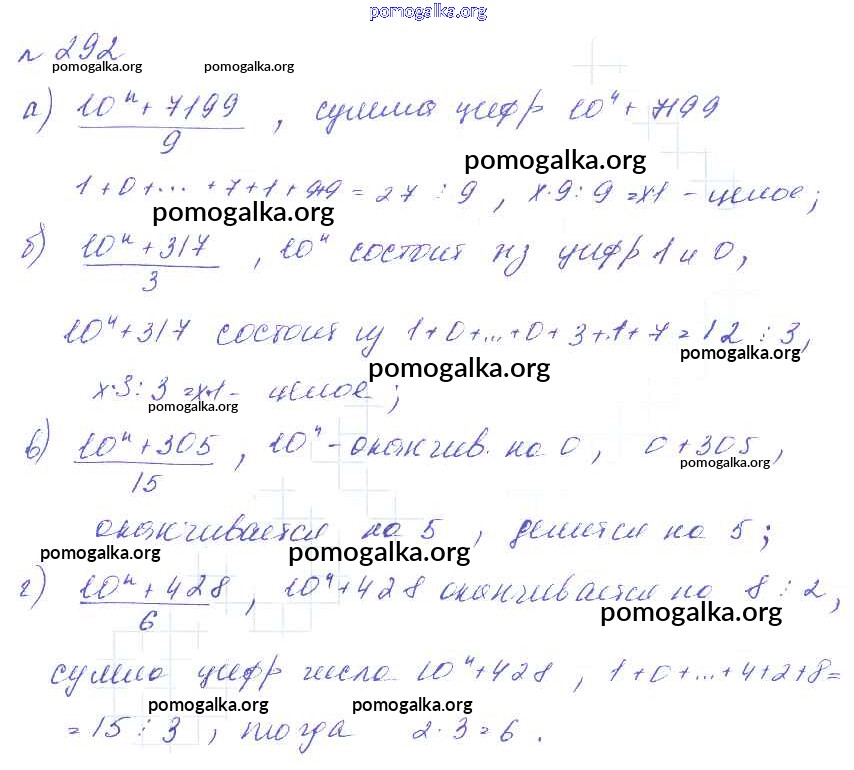 pomogalka.org
№ 292
pomogalka.org pomogalka.org
а) 10ⁿ + 7199 / 9 , сумма цифр 10ⁿ + 7199
pomogalka.org
1 + 0 + ... + 7 + 1 + 9+9 = 27 ⋮ 9 , х·9 : 9 = х·1 - целое;
pomogalka.org
б) 10ⁿ + 317 / 3 , 10ⁿ состоит из цифр 1 и 0,
10ⁿ + 317 состоит из 1 + 0 + ... + 0 + 3 + 1 + 7 = 12 ⋮ 3,
pomogalka.org pomogalka.org
х·3 : 3 = х·1 - целое;
pomogalka.org
в) 10ⁿ + 305 / 15 , 10ⁿ - оканчив. на 0 , 0 + 305 ,
pomogalka.org
оканчивается на 5 , делится на 5 ;
pomogalka.org pomogalka.org
г) 10ⁿ + 428 / 6 , 10ⁿ + 428 оканчивается на 8 ⋮ 2 ,
pomogalka.org
сумма цифр числа 10ⁿ + 428 , 1 + 0 + ... + 4 + 2 + 8 =
pomogalka.org pomogalka.org
= 15 ⋮ 3 , тогда 2 · 3 = 6 .
pomogalka.org pomogalka.org